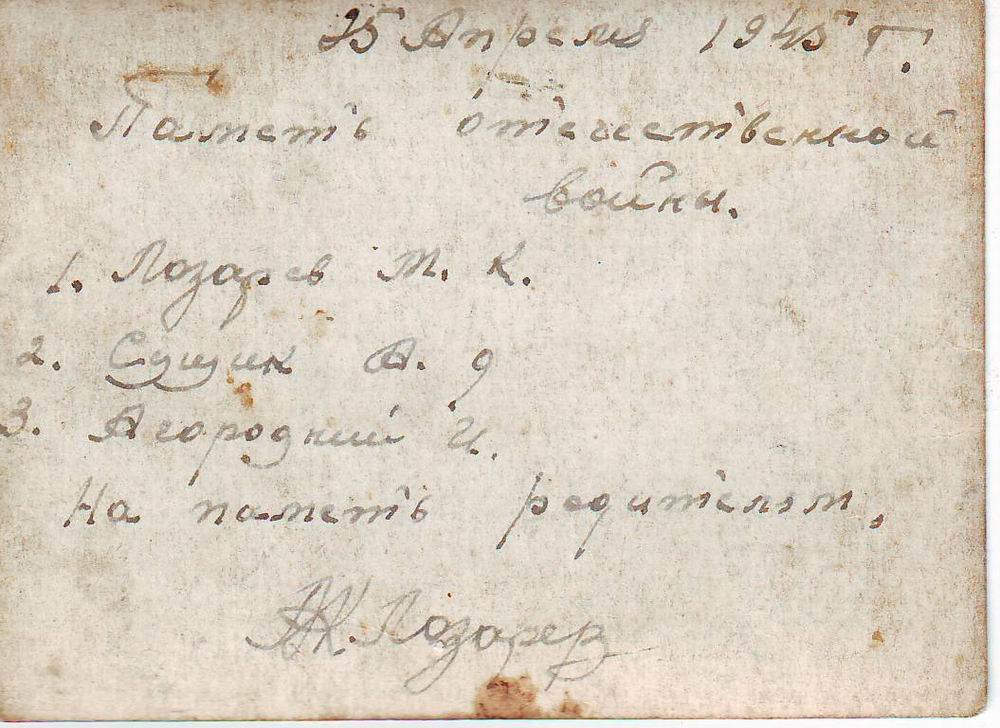 25 Апреля 1945 г.
Паметь отечественной
войны.
1. Лозарев М. К.
2. Сущик А. д
3. Агородний И.
На паметь родителям.
Лозарев